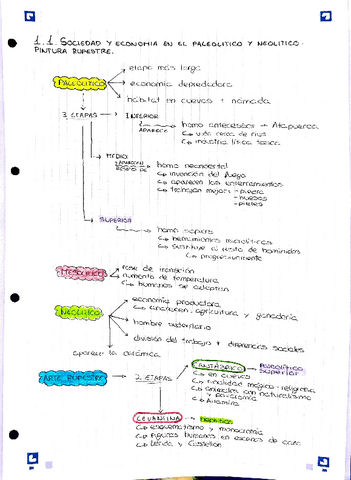 1.1. SOCIEDAD Y ECONOMIA EN EL PALEOLITICO Y NEOLITICO.
PINTURA RUPESTRE.
etapa más larga
PALEOLITICO
economía depredadora
hábitat en cuevas + nómada
3 ETAPAS
INFERIOR
APARECE
homo antecessor → Atapuerca
vida cerca de ríos
industria lítica tosca
MEDIO
homo neandertal
invención del fuego
aparecen los enterramientos
trabajan mejor - piedra
- huesos
- pieles
SUPERIOR
homo sapiens
herramientas microlíticas
sustituye al resto de homínidos
progresivamente
MESOLITICO
fase de transición
aumento de temperatura
humanos se adaptan
NEOLITICO
economía productora
agricultura y ganadería
hombre sedentario
división del trabajo + diferencias sociales
aparece la cerámica
ARTE RUPESTRE
2 ETAPAS
CANTÁBRICO
PALEOLÍTICO
SUPERIOR
en cuevas
finalidad mágico-religiosa
animales con naturalismo
y policromía
Altamira
LEVANTINA
esquematismo y monocromía
figuras humanas en escenas de caza
Lérida y Castellón